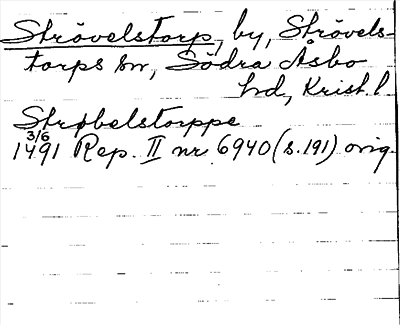 Strövelstorp, by, Strövels-
torps sn, Södra Åsbo
hd, Krist. l.
Strøbelstorppe
3/6
1491 Rep. II nr 6940 (s. 191) orig.